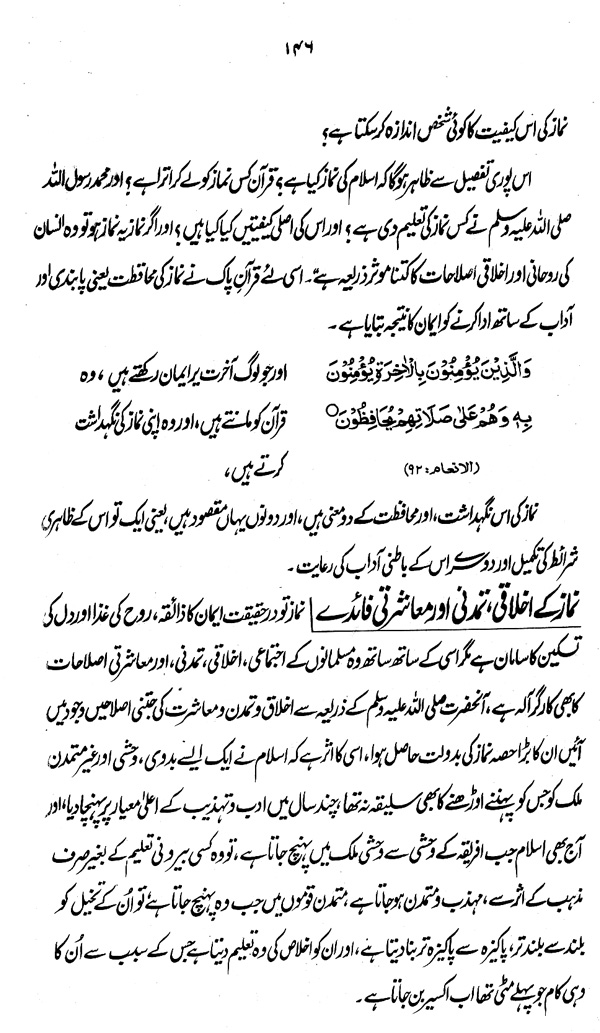 ۱۴۶
نماز کی اس کیفیت کا کوئی شخص اندازہ کر سکتا ہے؟
اس پوری تفصیل سے ظاہر ہوگا کہ اسلام کی نماز کیا ہے؟ قرآن کس نماز کو لے کر اترا ہے؟ اور محمد رسول اللہ
صلی اللہ علیہ وسلم نے کس نماز کی تعلیم دی ہے؟ اور اس کی اصلی کیفیتیں کیا کیا ہیں؟ اور اگر نماز یہ نماز ہو تو وہ انسان
کی روحانی اور اخلاقی اصلاحات کا کتنا موثر ذریعہ ہے۔ اسی لئے قرآن پاک نے نماز کی محافظت یعنی پابندی اور
آداب کے ساتھ ادا کرنے کو ایمان کا نتیجہ بتایا ہے۔
وَالَّذِيْنَ يُؤْمِنُوْنَ بِالْاٰخِرَةِ يُؤْمِنُوْنَ اور جو لوگ آخرت پر ایمان رکھتے ہیں، وہ
بِهٖ وَهُمْ عَلٰى صَلَاتِهِمْ يُحَافِظُوْنَ○ قرآن کو مانتے ہیں، اور وہ اپنی نماز کی نگہداشت
(الانعام: ۹۲) کرتے ہیں،
نماز کی اس نگہداشت، اور محافظت کے دو معنی ہیں، اور دونوں یہاں مقصود ہیں، یعنی ایک تو اس کے ظاہری
شرائط کی تکمیل اور دوسرے اس کے باطنی آداب کی رعایت۔
نماز کے اخلاقی، تمدنی اور معاشرتی فائدے نماز تو درحقیقت ایمان کا ذائقہ، روح کی غذا اور دل کی
تسکین کا سامان ہے مگر اسی کے ساتھ ساتھ وہ مسلمانوں کے اجتماعی، اخلاقی، تمدنی، اور معاشرتی اصلاحات
کا بھی کارگر آلہ ہے، آنحضرت صلی اللہ علیہ وسلم کے ذریعہ سے اخلاق و تمدن و معاشرت کی جتنی اصلاحیں وجود میں
آئیں ان کا بڑا حصہ نماز کی بدولت حاصل ہوا، اسی کا اثر ہے کہ اسلام نے ایک ایسے بدوی، وحشی اور غیر متمدن
ملک کو جس کو پہننے اوڑھنے کا بھی سلیقہ نہ تھا، چند سال میں ادب و تہذیب کے اعلیٰ معیار پر پہنچا دیا، اور
آج بھی اسلام جب افریقہ کے وحشی سے وحشی ملک میں پہنچ جاتا ہے، تو وہ کسی بیرونی تعلیم کے بغیر صرف
مذہب کے اثر سے، مہذب و متمدن ہو جاتا ہے، متمدن قوموں میں جب وہ پہنچ جاتا ہے تو اُن کے تخیل کو
بلند سے بلند تر، پاکیزہ سے پاکیزہ تر بنا دیتا ہے، اور ان کو اخلاص کی وہ تعلیم دیتا ہے جس کے سبب سے اُن کا
وہی کام جو پہلے مٹی تھا اب اکسیر بن جاتا ہے۔